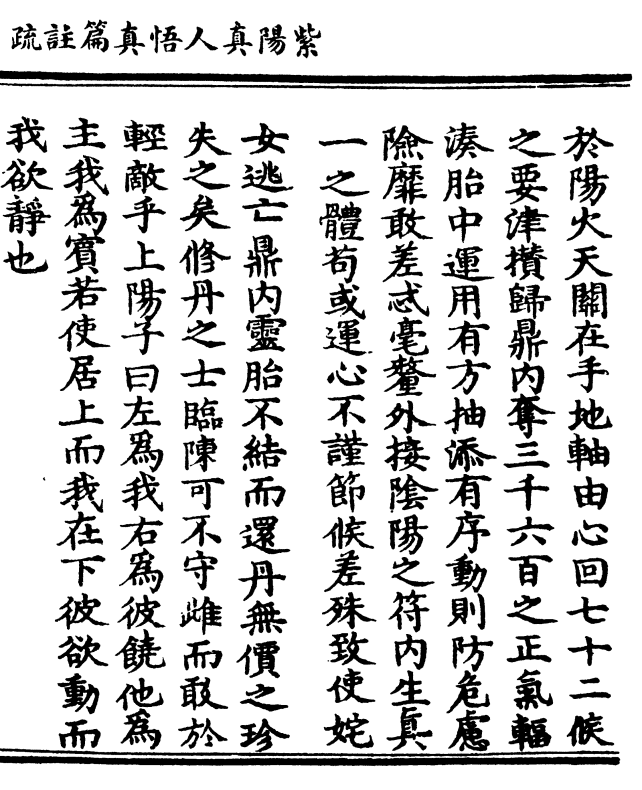 紫陽真人悟真篇註疏
於陽火天關在手地軸由心回七十二候
之要津攢歸鼎内奪三千六百之正氣輻
湊胎中運用有方抽添有序動則防危慮
險靡敢差忒毫釐外接陰陽之符内生真
一之體苟或運心不謹節候差殊致使姹
女逃亡鼎内靈胎不結而還丹無價之珍
失之矣修丹之士臨陳可不守雌而敢於
輕敵乎上陽子曰左為我右為彼饒他為
主我為賓若使居上而我在下彼欲動而
我欲靜也